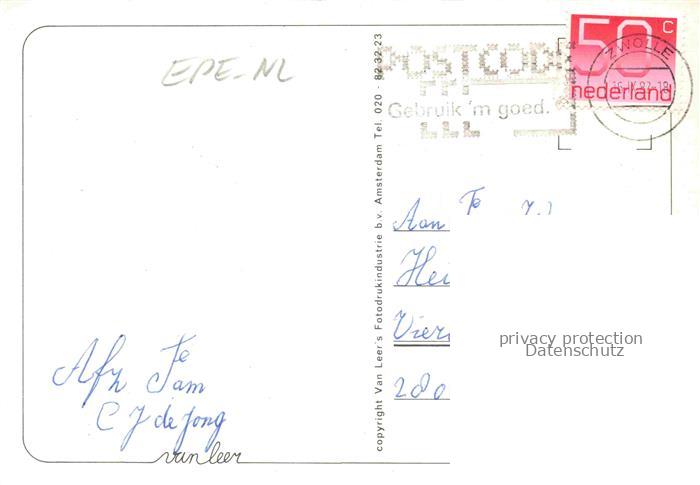 EPE-NL
POSTCODE
Gebruik 'm goed.
50 c
nederland
ZWOLLE
copyright Van Leer's Fotodrukindustrie b.v. Amsterdam Tel. 020 - 82 32 23
Fa
Aan
Hei
Vier
280
privacy protection
Datenschutz
Afz Fam
C J de Jong
van leer